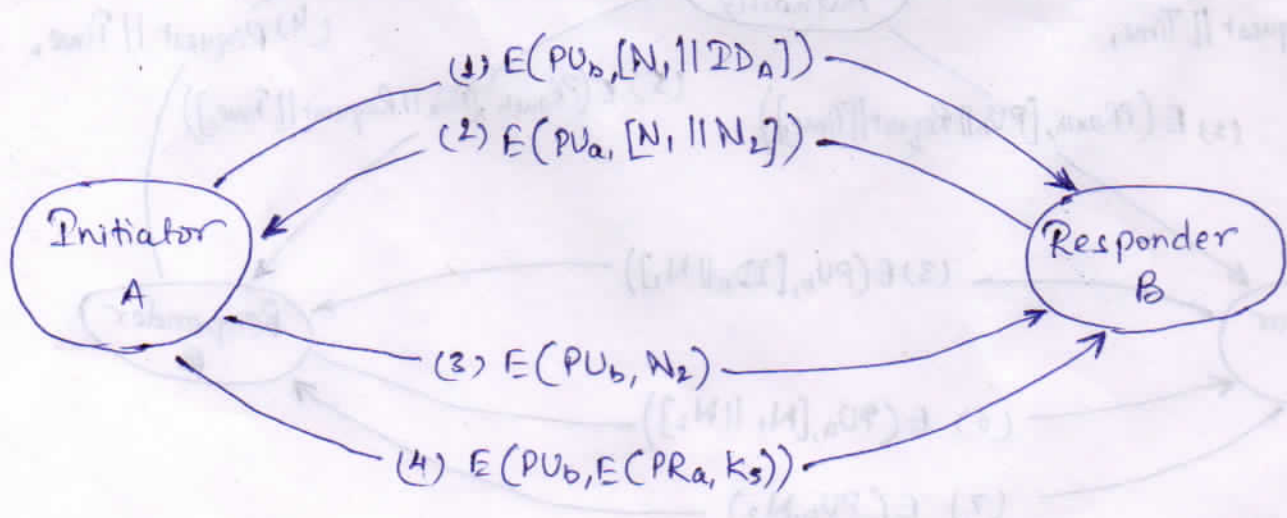 (1) E(PU_b, [N_1 || ID_A])
(2) E(PU_a, [N_1 || N_2])
Initiator
A
Responder
B
(3) E(PU_b, N_2)
(4) E(PU_b, E(PR_a, K_s))